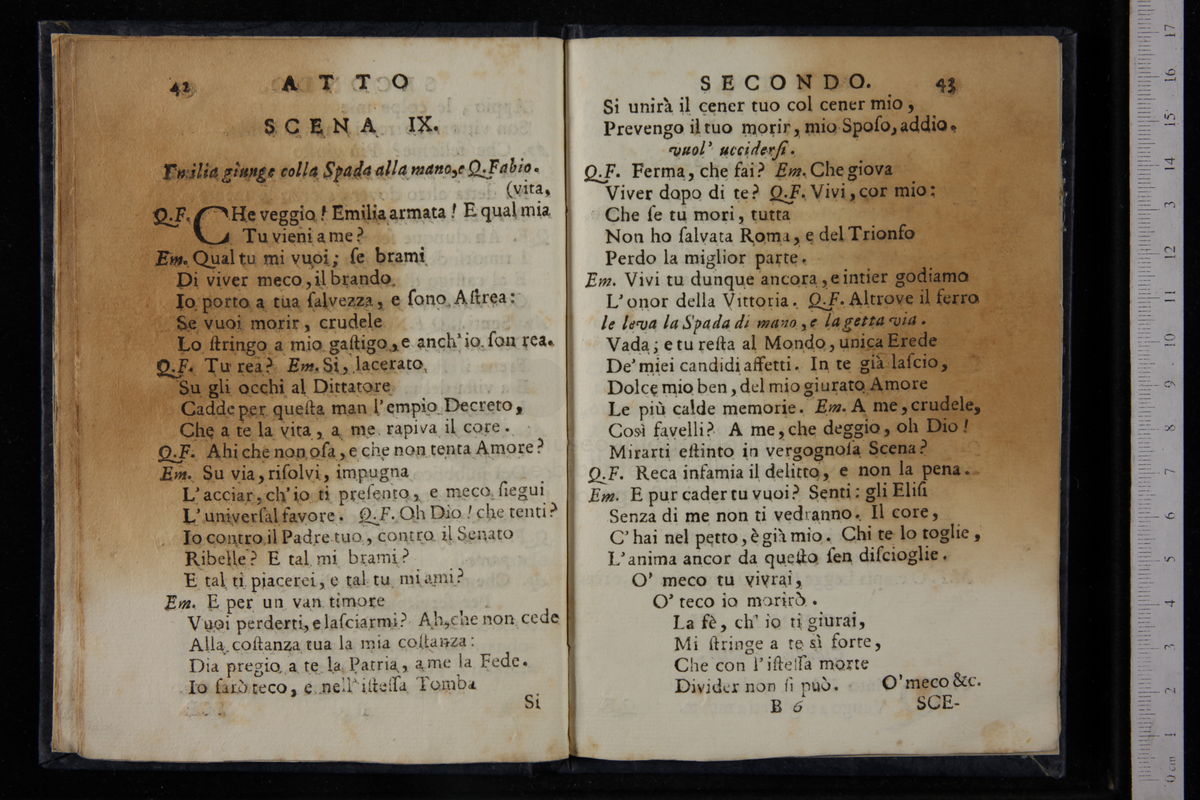 42 ATTO
SCENA IX.
Emilia giunge colla Spada alla mano, e Q.Fabio.
(vita,
Q.F. CHe veggio! Emilia armata! E qual mia
Tu vieni a me?
Em. Qual tu mi vuoi; ſe brami
Di viver meco, il brando
Io porto a tua ſalvezza, e ſono Aſtrea:
Se vuoi morir, crudele
Lo ſtringo a mio gaſtigo, e anch'io ſon rea.
Q.F. Tu rea? Em. Si, lacerato
Su gli occhi al Dittatore
Cadde per queſta man l'empio Decreto,
Che a te la vita, a me rapiva il core.
Q.F. Ahi che non oſa, e che non tenta Amore?
Em. Su via, riſolvi, impugna
L'acciar, ch'io ti preſento, e meco ſiegui
L'univerſal favore. Q.F. Oh Dio! che tenti?
Io contro il Padre tuo, contro il Senato
Ribelle? E tal mi brami?
E tal ti piacerei, e tal tu mi ami?
Em. E per un van timore
Vuoi perderti, e laſciarmi? Ah, che non cede
Alla coſtanza tua la mia coſtanza:
Dia pregio a te la Patria, a me la Fede.
Io farò teco, e nell'iſteſſa Tomba
Si
SECONDO. 43
Si unirà il cener tuo col cener mio,
Prevengo il tuo morir, mio Spoſo, addio.
vuol' ucciderſi.
Q.F. Ferma, che fai? Em. Che giova
Viver dopo di te? Q.F. Vivi, cor mio:
Che ſe tu mori, tutta
Non ho ſalvata Roma, e del Trionfo
Perdo la miglior parte.
Em. Vivi tu dunque ancora, e intier godiamo
L'onor della Vittoria. Q.F. Altrove il ferro
le leva la Spada di mano, e la getta via.
Vada; e tu reſta al Mondo, unica Erede
De' miei candidi affetti. In te già laſcio,
Dolce mio ben, del mio giurato Amore
Le più calde memorie. Em. A me, crudele,
Così favelli? A me, che deggio, oh Dio!
Mirarti eſtinto in vergognoſa Scena?
Q.F. Reca infamia il delitto, e non la pena.
Em. E pur cader tu vuoi? Senti: gli Eliſi
Senza di me non ti vedranno. Il core,
C'hai nel petto, è già mio. Chi te lo toglie,
L'anima ancor da queſto ſen diſcioglie.
O' meco tu vivrai,
O' teco io morirò.
La fè, ch' io ti giurai,
Mi ſtringe a te sì forte,
Che con l'iſteſſa morte
Divider non ſi può. O' meco &c.
B 6 SCE-
0 cm 1 2 3 4 5 6 7 8 9 10 11 12 13 14 15 16 17